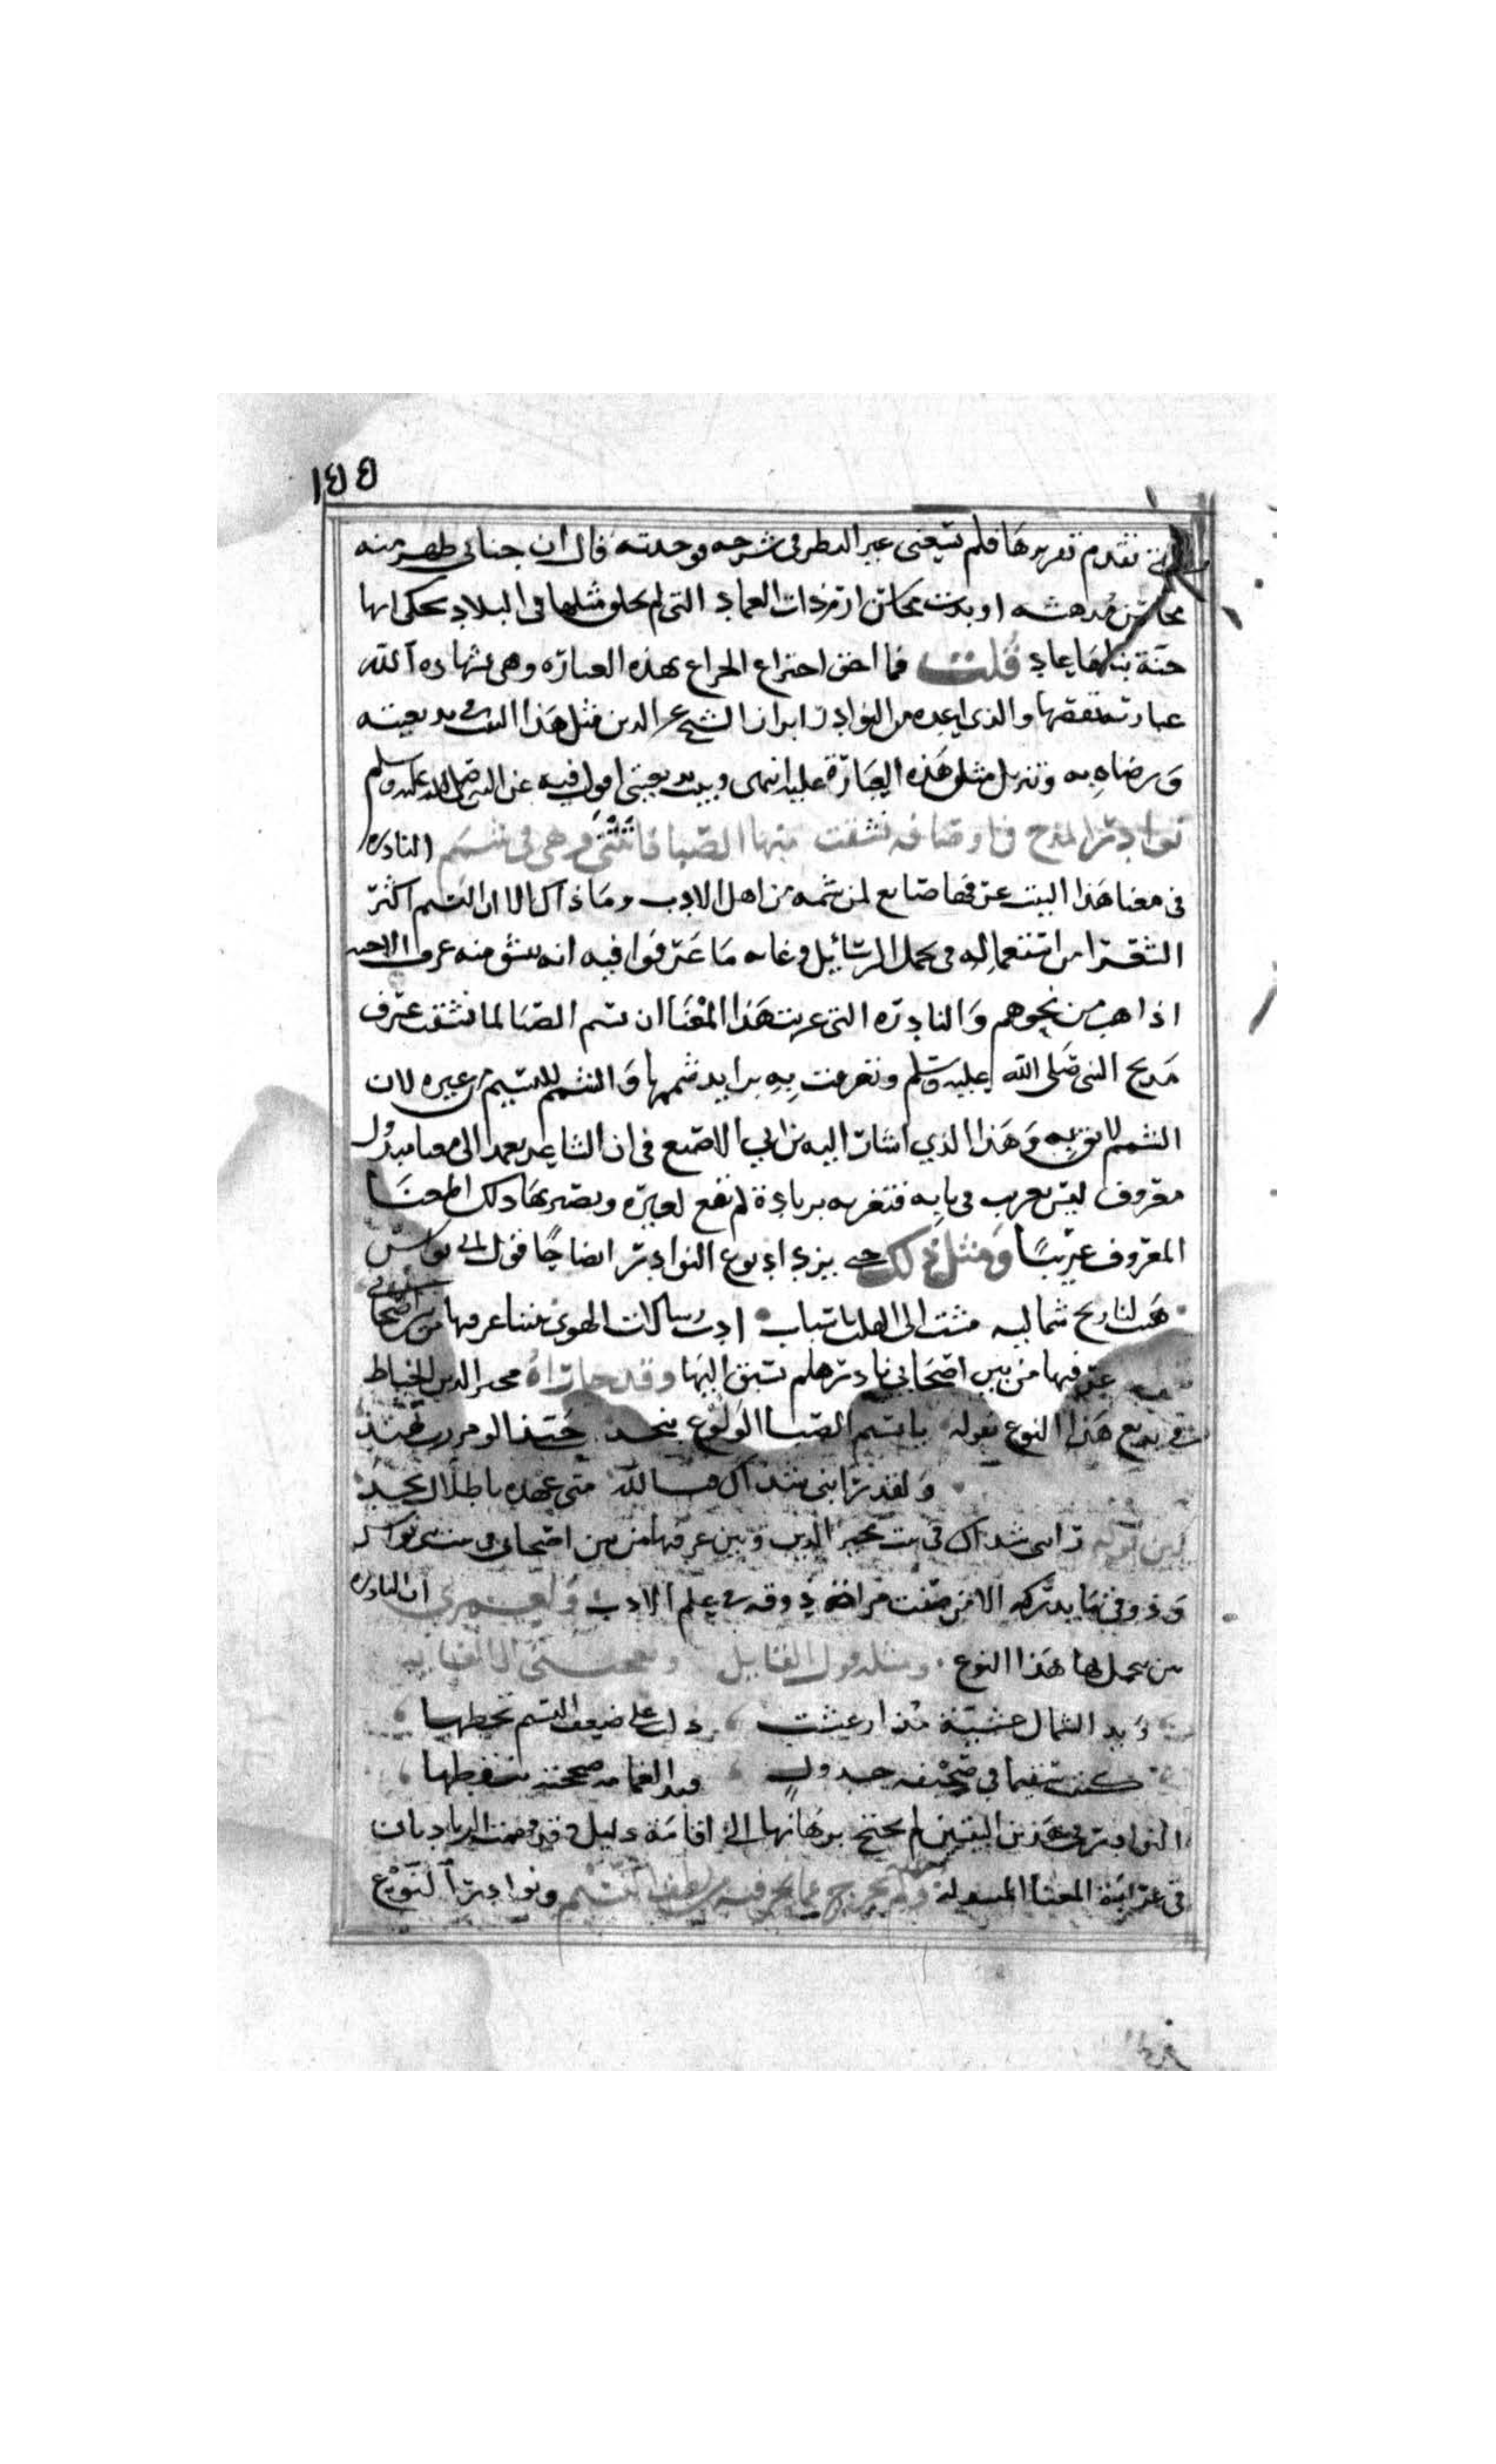 ١٤٤
تقدم تقريرها فلم يسعنى غير النظر فى شرحه فوجدته قال ان جنانى ظهر منه
محاسن مدهشه او بدت محاسن ارم ذات العماد التى لم يخلق مثلها فى البلاد يحكى انها
جنة بناها عاد قلت فما احق اختراع الجراع بهذه العبارة وهى بشهادة الله
عبارته بنصها والذى اعده من النوادر ابراز الشيخ عز الدين مثل هذا البيت فى بديعيته
ورضاه به وتنزيل مثل هذه العبارة عليه انتهى وبيت بديعيتى اقول فيه عن النبى صلى الله عليه وسلم
نوادر المدح فى اوصافه نشقت منها الصبا فاتتنى وهى فى شمم النادره
فى معنا هذا البيت عرفها ضايع لمن شمه من اهل الادب وما ذاك الا ان النسيم اكثر
الشعرا من استعماله فى تحمل الرسائل وغايه ما عرفوا فيه انه ينشق منه عرف الاحبه
اذا هب من نحوهم والنادره التى غربت هذا المعنا ان نسم الصبا لما نشقت عرف
مديح النبى صلى الله عليه وسلم وتعرفت به تزايد شممها والشمم للنسيم من غيره لان
الشمم لائق به وهذا الذي اشار اليه بن ابي الاصبع فى ان الشاعر يعمد الى معنا مبذول
معروف ليس بغريب فى بابه فتغربه بزيادة لم تقع لغيره ويصير بها ذلك المعنا
المعروف غريبًا ومثل ذلك حتى يزداد نوع النوادر ايضاحًا قول ابى نواس
هبت لنا ريح شماليه متت الى القلب باسباب ادت رسالات الهوى بيننا عرفتها من بين اصحابى
عرفتها من بين اصحابى نادره لم يسبق اليها وقد جاراه مجير الدين الخياط
فى بديع هذا النوع بقوله يا نسيم الصبا الولوع بنجد حبذا انت لو مررت بهند
ولقد رابنى شذاك فبالله متى عهده باطلال نجد
بين قوله رابنى شذاك فى بيت مجير الدين وبين عرفتها من بين اصحابى فى بيت ابى نواس
وذوق ما يدركه الا من صفت مراة ذوقه فى علم الادب ولعمري ان النادره
من يحمل بها هذا النوع ومثله قول القايل ويعجبنى الى الغايه
ويد الشمال عشية مذ ارعشت دلت على ضعف النسيم بخطها
كتبت سقيما فى صحيفه جدول فيد الغمامه صححته بنقطها
النوادر فى هذين البيتين لم تحتج برهانها الى اقامة دليل وقد وقعت الزيادتان
فى غرابة المعنا المبذول ولم يخرج عما نحن فيه من لطف النسيم ونوادر النوع